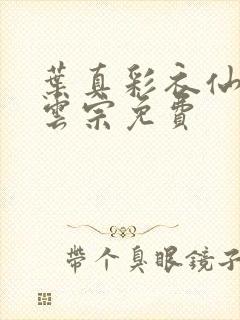 葉真彩衣仙
雲宗免費
帶个臭眼鏡子